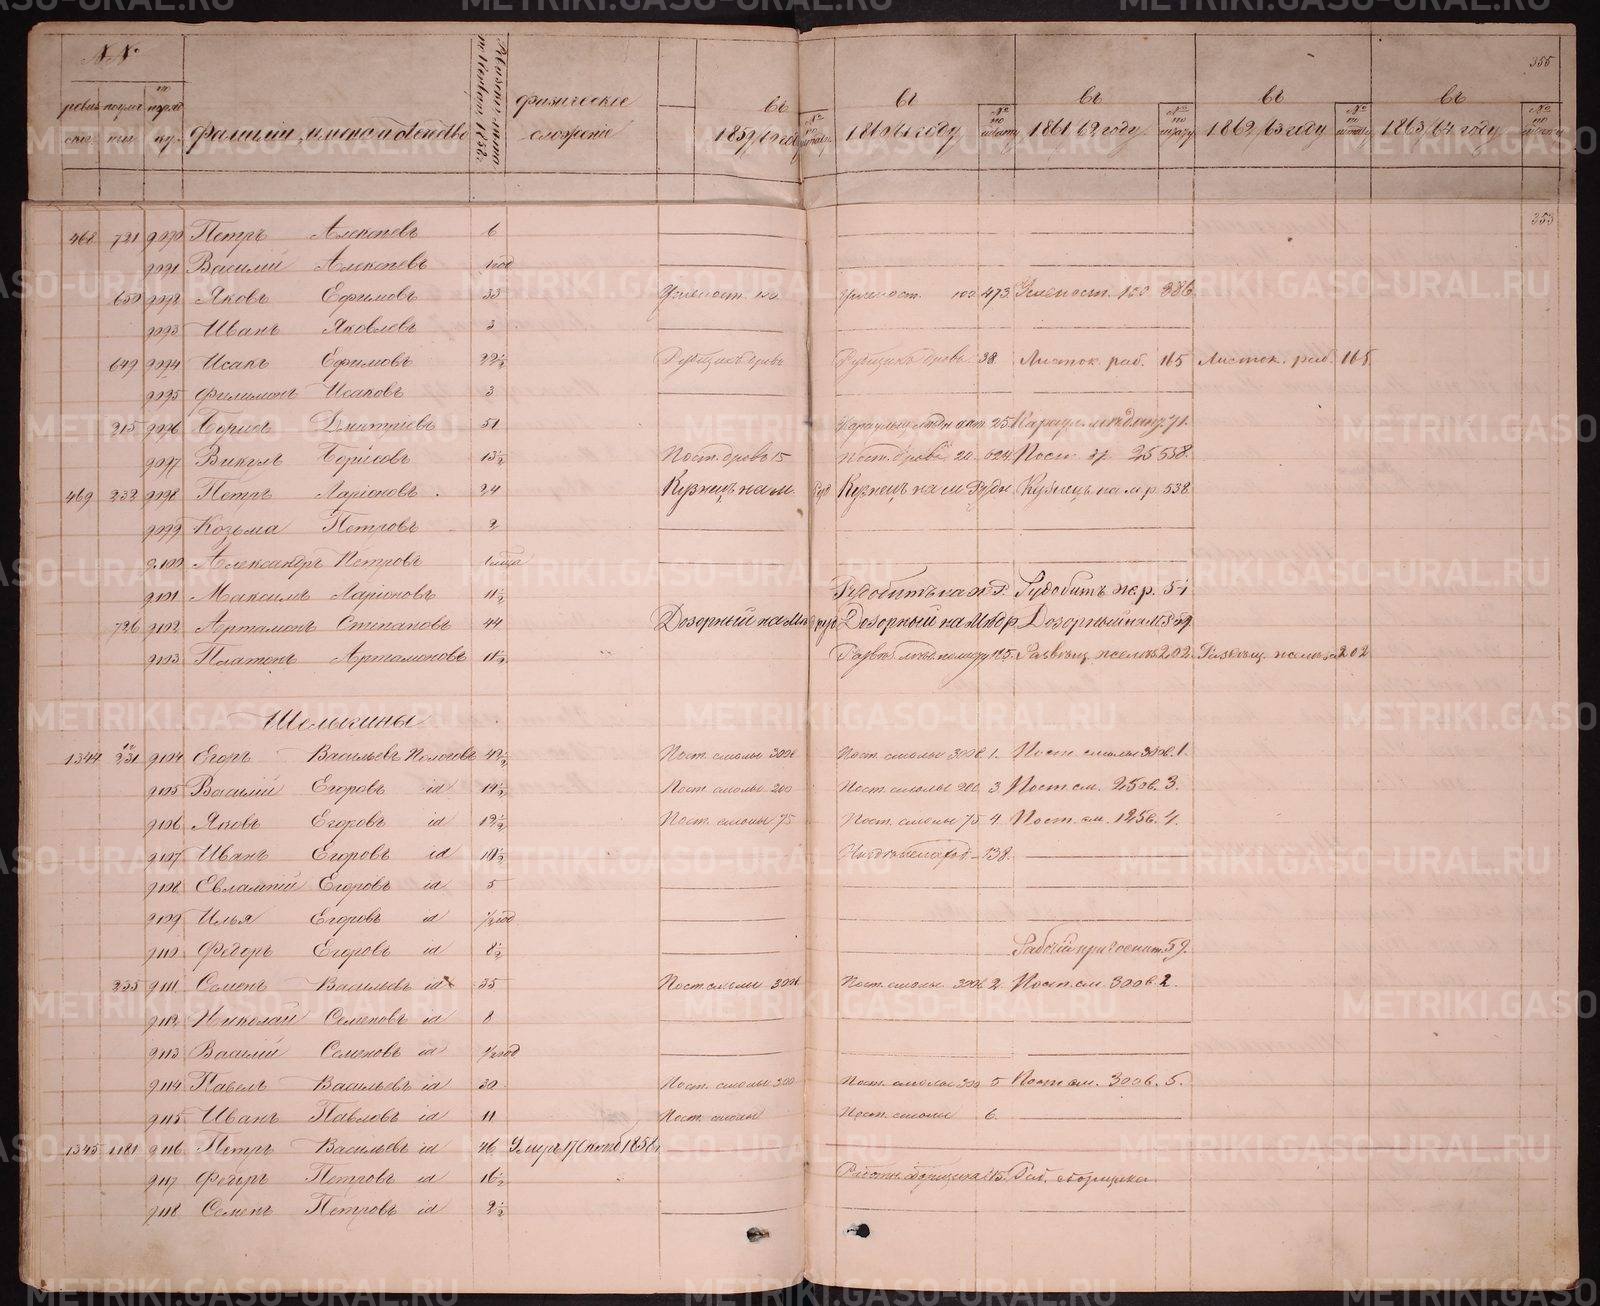 №№ физическое въ въ въ въ въ 355
ревиз поул по поряд фамилiи, имена и отечества сложенiе 1859/60 году № по штату 1860/61 году № по штату 1861/62 году № по штату 1862/63 году № по штату 1863/64 году № по штату
353
468 721 9090 Петръ Алексѣевъ 6
9091 Василiй Алексѣевъ 1 год
650 9092 Яковъ Ефимовъ 33 Углепост. 100 Углепост. 100 473 Углепост. 100 386
9093 Иванъ Яковлевъ 3
649 9094 Исакъ Ефимовъ 22½ Рубщикъ дровъ Рубщикъ дровъ 38 Листок. раб. 165 Листок. раб. 165
9095 Филимонъ Исаковъ 3
215 9096 Борисъ Дмитрiевъ 51 25 71
9097 Викулъ Борисовъ 13½ Пост. дровъ 15 Пост. дровъ 20 624 Пост. 25 558
469 232 9098 Петръ Ларiоновъ 24 Кузнецъ на м. Руд Кузнецъ на м. Рудн Кузнецъ на м р. 538
9099 Козьма Петровъ 2
9100 Александръ Петровъ
9101 Максимъ Ларiоновъ 11½ Рудобитъ на ж. Р. Рудобитъ ж.р. 54
726 9102 Артамонъ Степановъ 44 Дозорный на М. руд Дозорный на М. Дозорный на М.
9103 Платонъ Артамоновъ 11½ 185 Развѣщ. желѣза 202 Развѣщ. желѣза 202
Шелыгины
1344 231 9104 Егоръ Васильевъ Пологовъ 42½ Пост. смолы 300в. Пост. смолы 300в. 1. Пост. смолы 300в. 1.
9105 Василiй Егоровъ id 14½ Пост. смолы 200 Пост. смолы 200 3 Пост. см. 250в. 3.
9106 Яковъ Егоровъ id 12½ Пост. смолы 75 Пост. смолы 75 4 Пост. см. 125в. 4.
9107 Иванъ Егоровъ id 10½ 138.
9108 Евлампiй Егоровъ id 5
9109 Илья Егоровъ id ½ год
9110 Федоръ Егоровъ id 8½ Рабочiй при госпит. 59.
235 9111 Семенъ Васильевъ id 35 Пост. смолы 300в. Пост. смолы 300в. 2 Пост. см. 300в. 2.
9112 Николай Семеновъ id 8
9113 Василiй Семеновъ id ½ год
9114 Павелъ Васильевъ id 30 Пост. смолы 300 Пост. смолы 300 5 Пост. см. 300в. 5.
9115 Иванъ Павловъ id 11 Пост. смолы Пост. смолы 6.
1345 1181 9116 Петръ Васильевъ id 46 Умеръ 17 1858.
9117 Федоръ Петровъ id 16½ Работн. сборщика 15. Раб. сборщика
9118 Семенъ Петровъ id 2½
METRIKI.GASO-URAL.RU